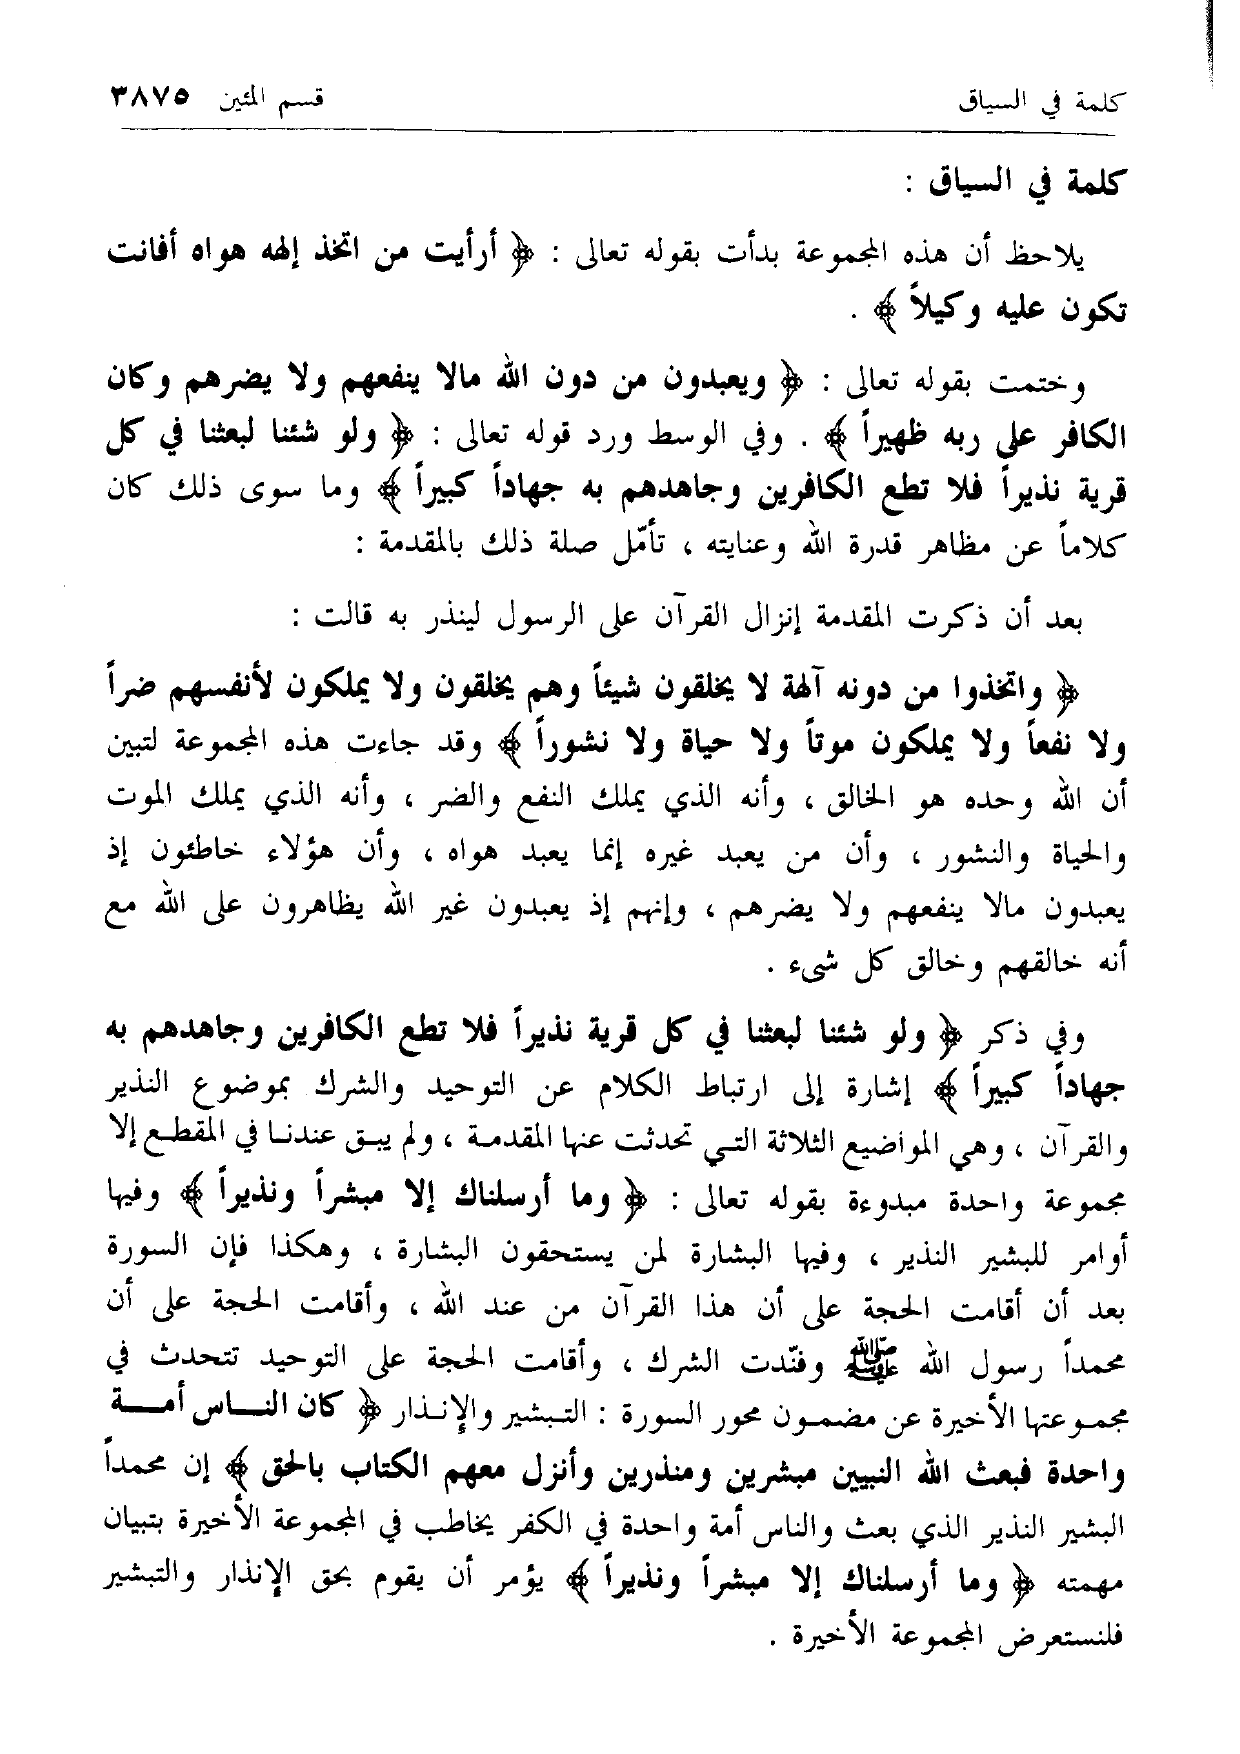 كلمة في السياق قسم المئين ٣٨٧٥
كلمة في السياق :
يلاحظ أن هذه المجموعة بدأت بقوله تعالى : ﴿ أرأيت من اتخذ إلهه هواه أفانت
تكون عليه وكيلاً ﴾ .
وختمت بقوله تعالى : ﴿ ويعبدون من دون الله مالا ينفعهم ولا يضرهم وكان
الكافر على ربه ظهيراً ﴾ . وفي الوسط ورد قوله تعالى : ﴿ ولو شئنا لبعثنا في كل
قرية نذيراً فلا تطع الكافرين وجاهدهم به جهاداً كبيراً ﴾ وما سوى ذلك كان
كلاماً عن مظاهر قدرة الله وعنايته ، تأمّل صلة ذلك بالمقدمة :
بعد أن ذكرت المقدمة إنزال القرآن على الرسول لينذر به قالت :
﴿ واتخذوا من دونه آلهة لا يخلقون شيئاً وهم يخلقون ولا يملكون لأنفسهم ضراً
ولا نفعاً ولا يملكون موتاً ولا حياة ولا نشوراً ﴾ وقد جاءت هذه المجموعة لتبين
أن الله وحده هو الخالق ، وأنه الذي يملك النفع والضر ، وأنه الذي يملك الموت
والحياة والنشور ، وأن من يعبد غيره إنما يعبد هواه ، وأن هؤلاء خاطئون إذ
يعبدون مالا ينفعهم ولا يضرهم ، وإنهم إذ يعبدون غير الله يظاهرون على الله مع
أنه خالقهم وخالق كل شيء .
وفي ذكر ﴿ ولو شئنا لبعثنا في كل قرية نذيراً فلا تطع الكافرين وجاهدهم به
جهاداً كبيراً ﴾ إشارة إلى ارتباط الكلام عن التوحيد والشرك بموضوع النذير
والقرآن ، وهي المواضيع الثلاثة التي تحدثت عنها المقدمة ، ولم يبق عندنا في المقطع إلا
مجموعة واحدة مبدوءة بقوله تعالى : ﴿ وما أرسلناك إلا مبشراً ونذيراً ﴾ وفيها
أوامر للبشير النذير ، وفيها البشارة لمن يستحقون البشارة ، وهكذا فإن السورة
بعد أن أقامت الحجة على أن هذا القرآن من عند الله ، وأقامت الحجة على أن
محمداً رسول الله ﷺ وفنّدت الشرك ، وأقامت الحجة على التوحيد تتحدث في
مجموعتها الأخيرة عن مضمون محور السورة : التبشير والإنذار ﴿ كان الناس أمة
واحدة فبعث الله النبيين مبشرين ومنذرين وأنزل معهم الكتاب بالحق ﴾ إن محمداً
البشير النذير الذي بعث والناس أمة واحدة في الكفر يخاطب في المجموعة الأخيرة بتبيان
مهمته ﴿ وما أرسلناك إلا مبشراً ونذيراً ﴾ يؤمر أن يقوم بحق الإنذار والتبشير
فلنستعرض المجموعة الأخيرة .